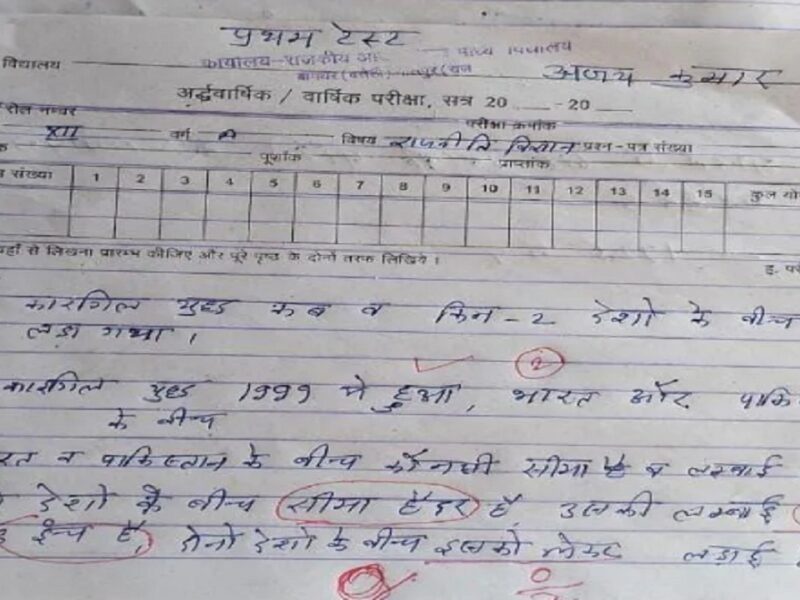 प्रथम टेस्ट
कार्यालय-राजकीय आ॰ माध्य विद्यालय
विद्यालय अजय कुमार
अर्द्धवार्षिक / वार्षिक परीक्षा, सत्र 20 -20
रोल नम्बर परीक्षा क्रमांक
XII वर्ग A विषय राजनीति विज्ञान प्रश्न-पत्र संख्या
पूर्णांक प्राप्तांक
संख्या 1 2 3 4 5 6 7 8 9 10 11 12 13 14 15 कुल यो
यहाँ से लिखना प्रारम्भ कीजिए और पूरे पृष्ठ के दोनों तरफ लिखिये।
इ. प
कारगिल युद्ध कब व किन-2 देशो के बीच
लड़ा गया।
2
कारगिल युद्ध 1999 मे हुआ, भारत और पाकि
के बीच
रत व पाकिस्तान के बीच कौनसी सीमा है व लम्बाई
देशो के बीच सीमा हैदर है उसकी लम्बाई
इंच है, दोनो देशो के बीच इसको लेकर लड़ाई
0